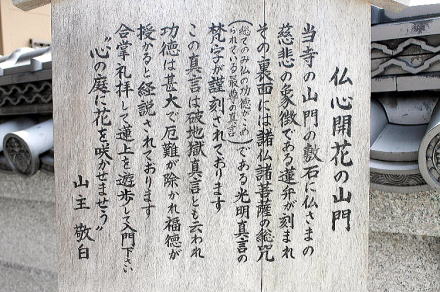 仏心開花の山門
当寺の山門の敷石に仏さまの
慈悲の象徴である蓮弁が刻まれ
その裏面には諸仏諸菩薩の総咒
(総てのみ仏の功徳がこめられている最勝の真言)である光明真言の
梵字が謹刻されております
この真言は破地獄真言とも云われ
功徳は甚大で厄難が除かれ福徳が
授かると経説されております
合掌礼拝して蓮上を遊歩し入門下さい
"心の庭に花を咲かせませう"
山主 敬白